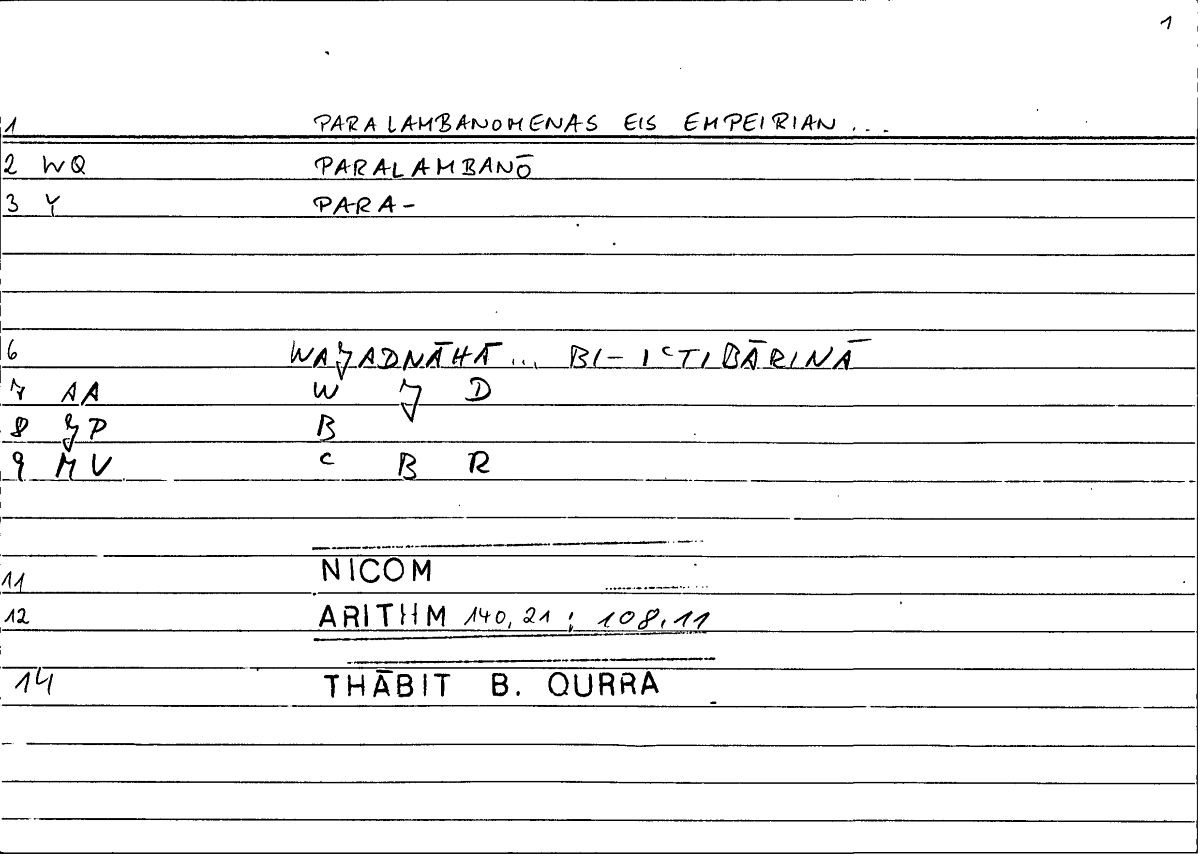 1
1 PARALAMBANOMENAS EIS EMPEIRIAN ...
2 WQ PARALAMBANŌ
3 Y PARA-
6 WAJADNĀHĀ ... BI- IᶜTIBĀRINĀ
7 AA W J D
8 JP B
9 MV ᶜ B R
11 NICOM
12 ARITHM 140,21 ; 108,11
14 THĀBIT B. QURRA